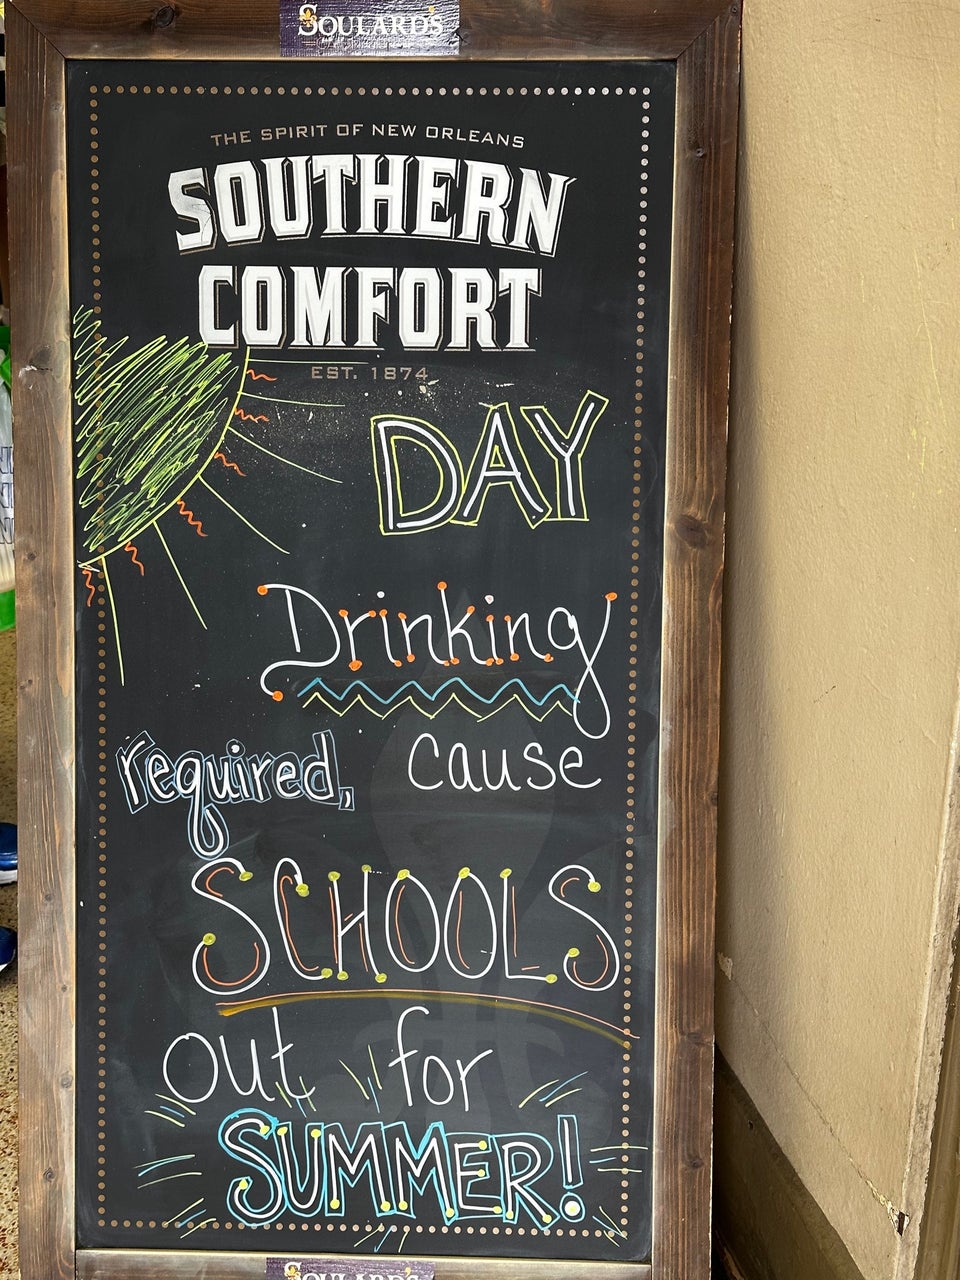 SOULARD'S
THE SPIRIT OF NEW ORLEANS
SOUTHERN
COMFORT
EST. 1874
DAY
Drinking
required, cause
SCHOOLS
out for
SUMMER!
SOULARD'S